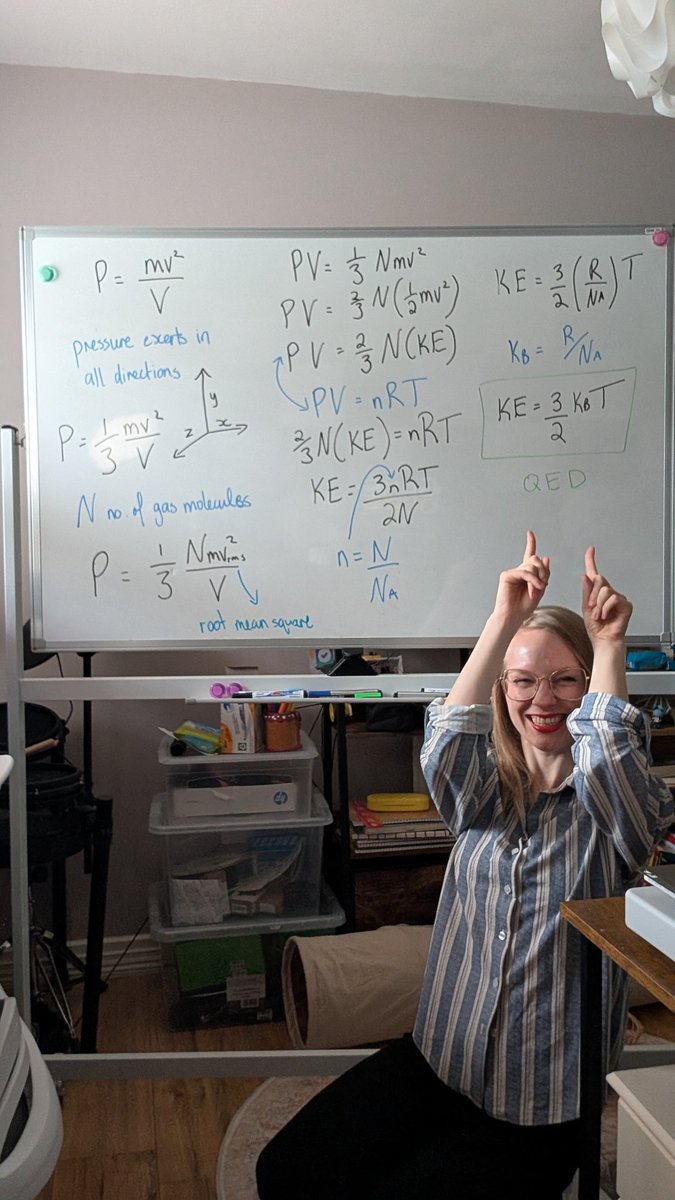 P = mv²/V
pressure excerts in
all directions
y
x
z
P = 1/3 mv²/V
N no. of gas molecules
P = 1/3 Nmv²rms/V
root mean square
PV = 1/3 Nmv²
PV = 2/3 N(1/2mv²)
PV = 2/3 N(KE)
PV = nRT
2/3 N(KE) = nRT
KE = 3nRT/2N
n = N/NA
KE = 3/2 (R/NA) T
KB = R/NA
KE = 3/2 KBT
QED
hp